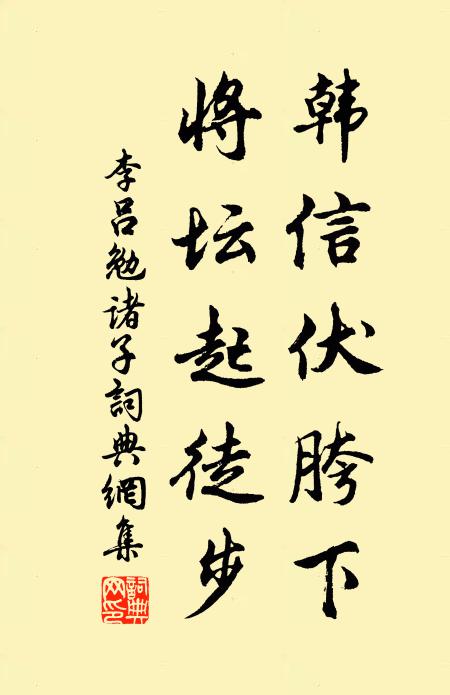 韩信伏胯下
将坛起徒步
李吕勉诸子詞典網集
詞典网印